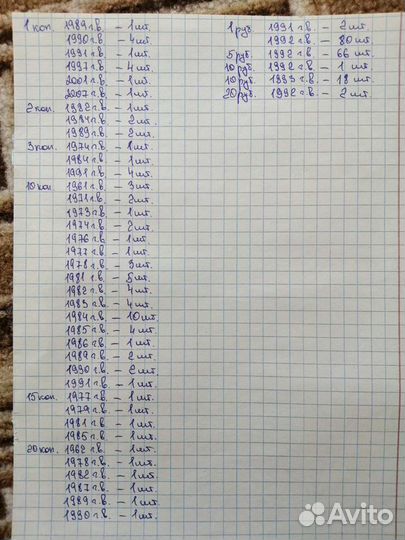 1 коп. 1989 г.в. – 1 шт.
1990 г.в. – 4 шт.
1991 г.в. – 1 шт.
1997 г.в. – 4 шт.
2001 г.в. – 1 шт.
2007 г.в. – 1 шт.
2 коп. 1982 г.в. – 1 шт.
1984 г.в. – 2 шт.
1989 г.в. – 2 шт.
3 коп. 1974 г.в. – 1 шт.
1984 г.в. – 1 шт.
1991 г.в. – 4 шт.
10 коп. 1961 г.в. – 3 шт.
1971 г.в. – 2 шт.
1973 г.в. – 1 шт.
1974 г.в. – 2 шт.
1976 г.в. – 1 шт.
1977 г.в. – 1 шт.
1978 г.в. – 3 шт.
1981 г.в. – 5 шт.
1982 г.в. – 4 шт.
1983 г.в. – 4 шт.
1984 г.в. – 10 шт.
1985 г.в. – 4 шт.
1986 г.в. – 1 шт.
1989 г.в. – 2 шт.
1990 г.в. – 2 шт.
1991 г.в. – 1 шт.
15 коп. 1977 г.в. – 1 шт.
1979 г.в. – 1 шт.
1981 г.в. – 1 шт.
1985 г.в. – 1 шт.
20 коп. 1962 г.в. – 1 шт.
1978 г.в. – 1 шт.
1982 г.в. – 1 шт.
1987 г.в. – 1 шт.
1989 г.в. – 1 шт.
1990 г.в. – 1 шт.
1 руб. 1991 г.в. – 2 шт.
1992 г.в. – 80 шт.
5 руб. 1992 г.в. – 66 шт.
10 руб. 1992 г.в. – 1 шт.
10 руб. 1993 г.в. – 18 шт.
20 руб. 1992 г.в. – 2 шт.
Avito